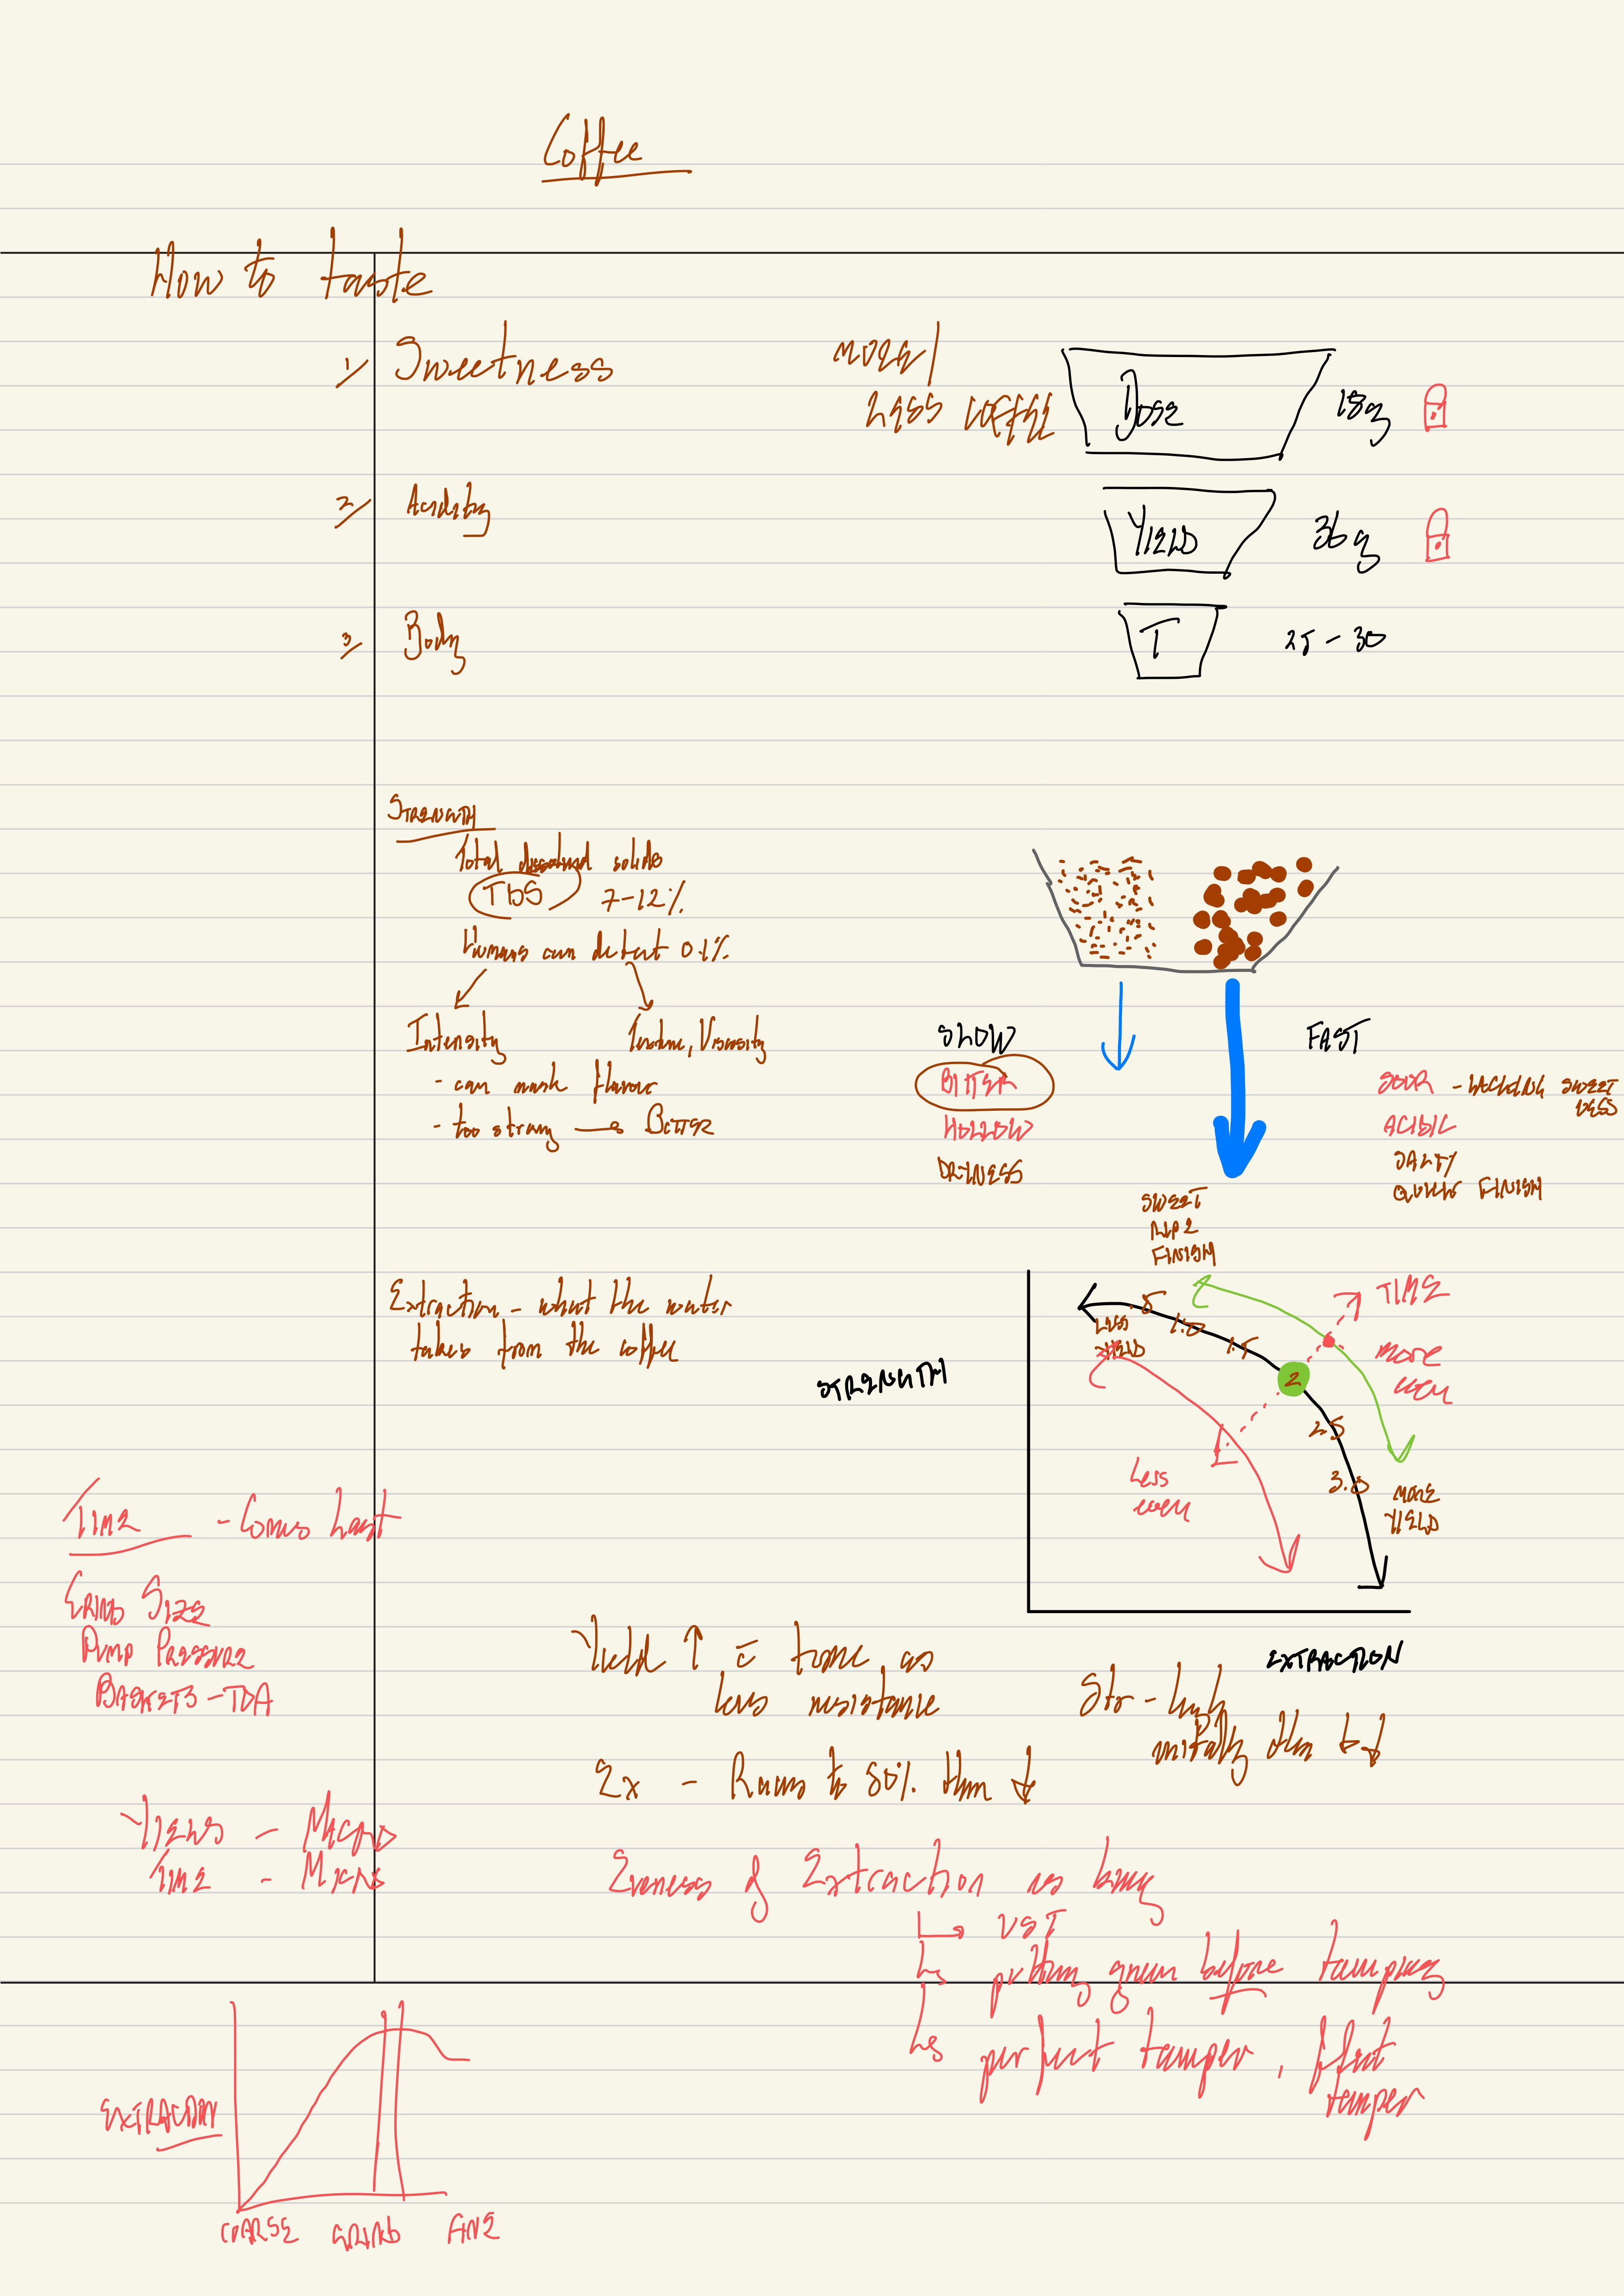 Coffee
How to taste
1/ Sweetness
2/ Acidity
3/ Body
MORE/
LESS COFFEE
DOSE 18g
YIELD 36g
T 25 - 30
STRENGTH
Total dissolved solids
TDS 7-12%
Humans can detect 0.1%
Intensity
Texture, Viscosity
- can mask flavour
- too strong → BITTER
SLOW
BITTER
HOLLOW
DRYNESS
FAST
SOUR - LACKING SWEET
NESS
ACIDIC
SALTY
QUICK FINISH
SWEET
RIPE
FINISH
Extraction - what the water
takes from the coffee
STRENGTH
LESS
YIELD
.5
1.0
1.5
2
2.5
3.0
TIME
MORE
even
Less
even
MORE
YIELD
EXTRACTION
TIME - Comes Last
GRIND SIZE
PUMP PRESSURE
BASKETS - TDA
Yield ↑ = time as
less resistance
Str - high
initially then ↓
Ex - Runs to 80% then ↓
YIELD - MACRO
TIME - MICRO
Eveness of Extraction is key
↳ VST
↳ before tamping
↳ perfect tamper, flat
tamper
EXTRACTION
COARSE GRIND FINE